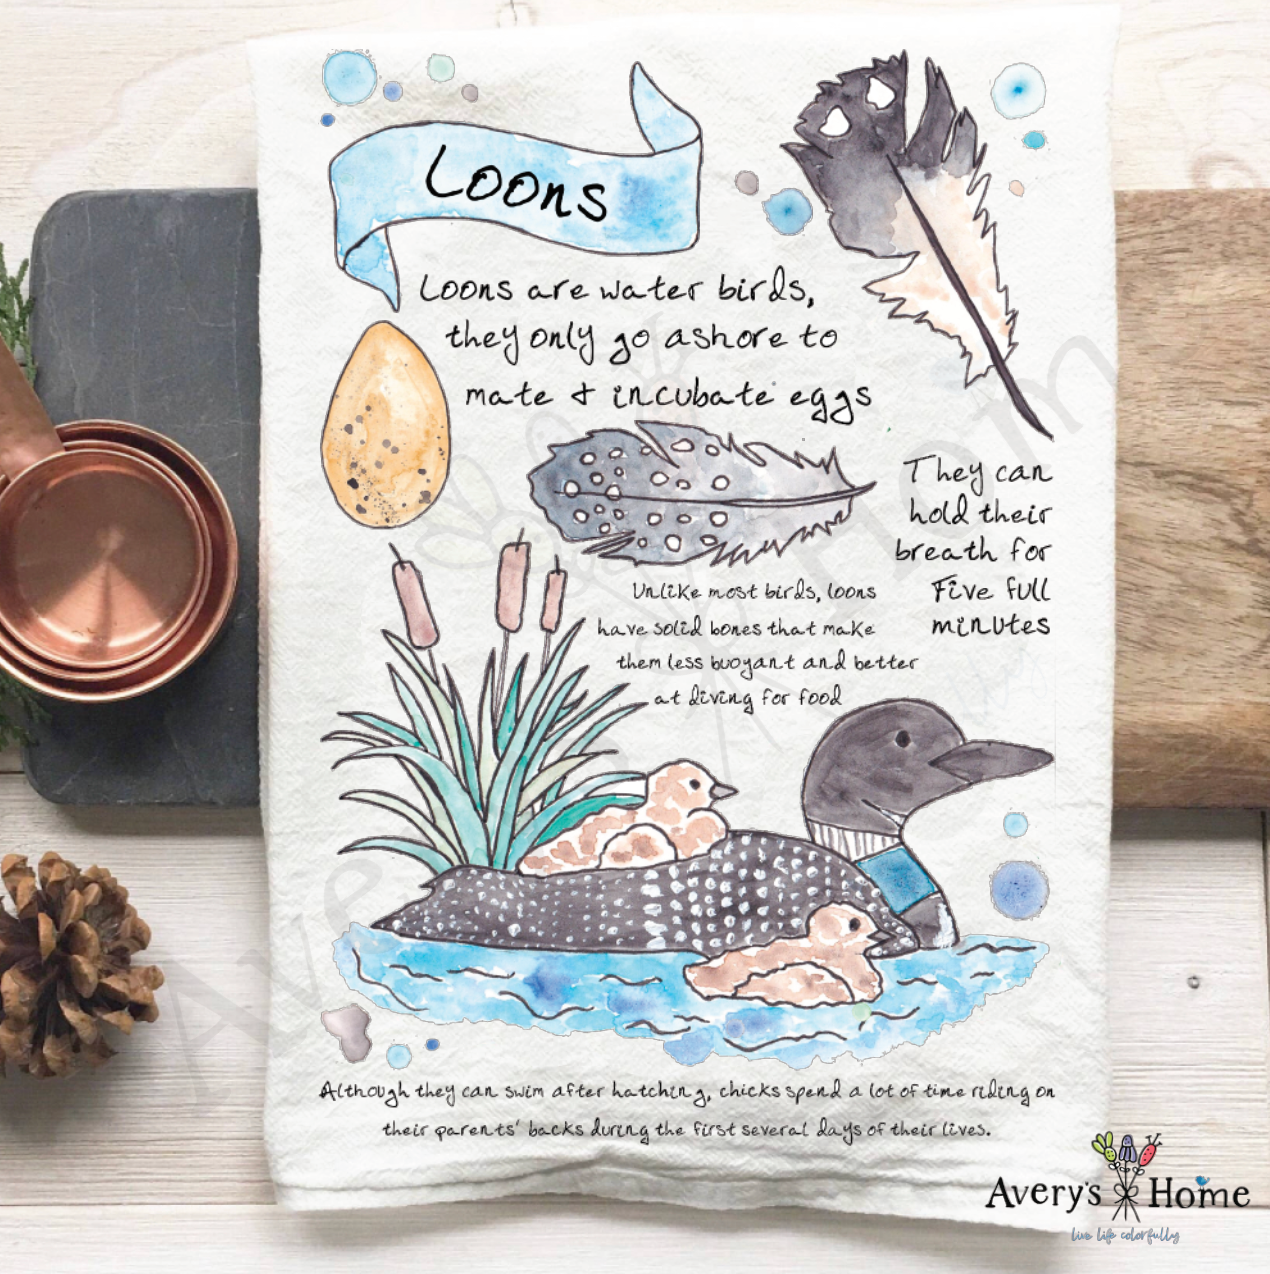 Loons
Loons are water birds,
they only go ashore to
mate & incubate eggs
They can
hold their
breath for
Five full
minutes
Unlike most birds, loons
have solid bones that make
them less buoyant and better
at diving for food
Although they can swim after hatching, chicks spend a lot of time riding on
their parents' backs during the first several days of their lives.
Avery's Home
live life colorfully
Avery's Home